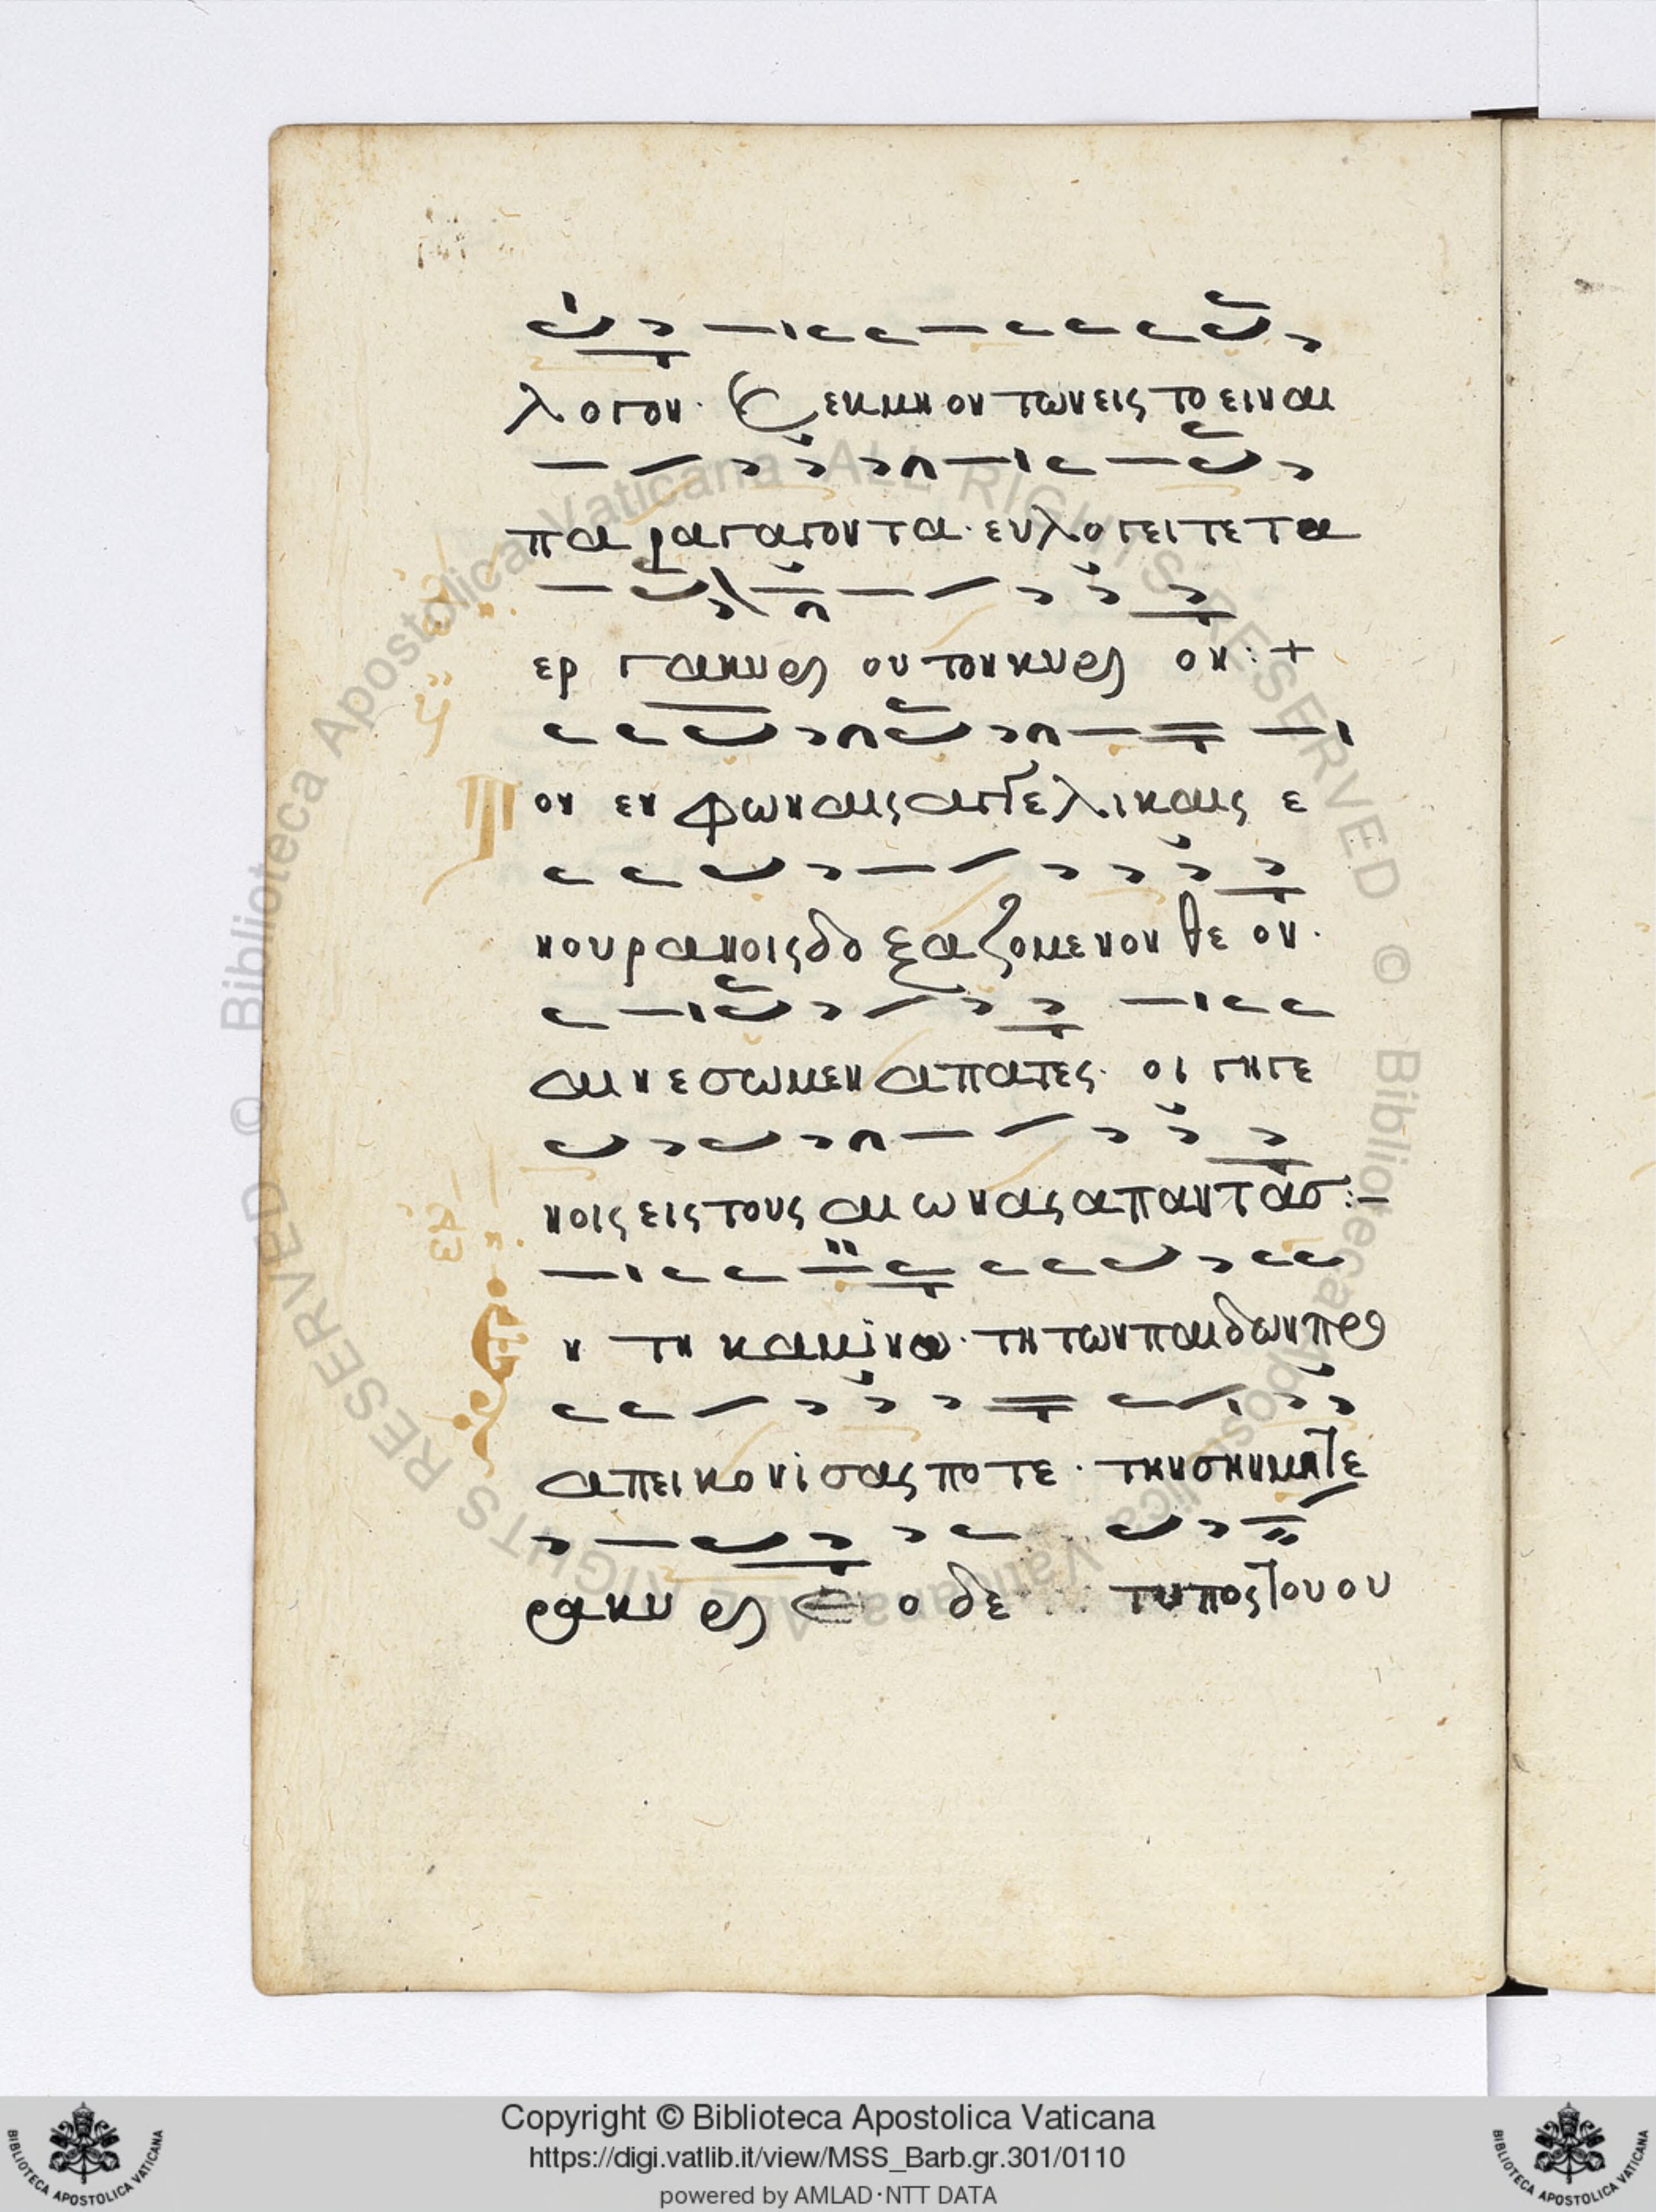 λογον· ϗ εκ μη οντων εις το ειναι
παραγαγοντα· ευλογειτε τα
εργα κυρι ου τον κυρι ον:+
ον εν φωναις αγγελικαις ε
ν ουρανοις δοξαζομενον θεον·
αινεσωμεν απατες· οι γηγε
νοις εις τους αιωνας απαντασ:-
ν τη καμινω· τη των παιδων προ
απεικονισας ποτε· την σην μητε
ρα κυρι ο δε τυπος τουου
Copyright © Biblioteca Apostolica Vaticana
https://digi.vatlib.it/view/MSS_Barb.gr.301/0110
powered by AMLAD·NTT DATA